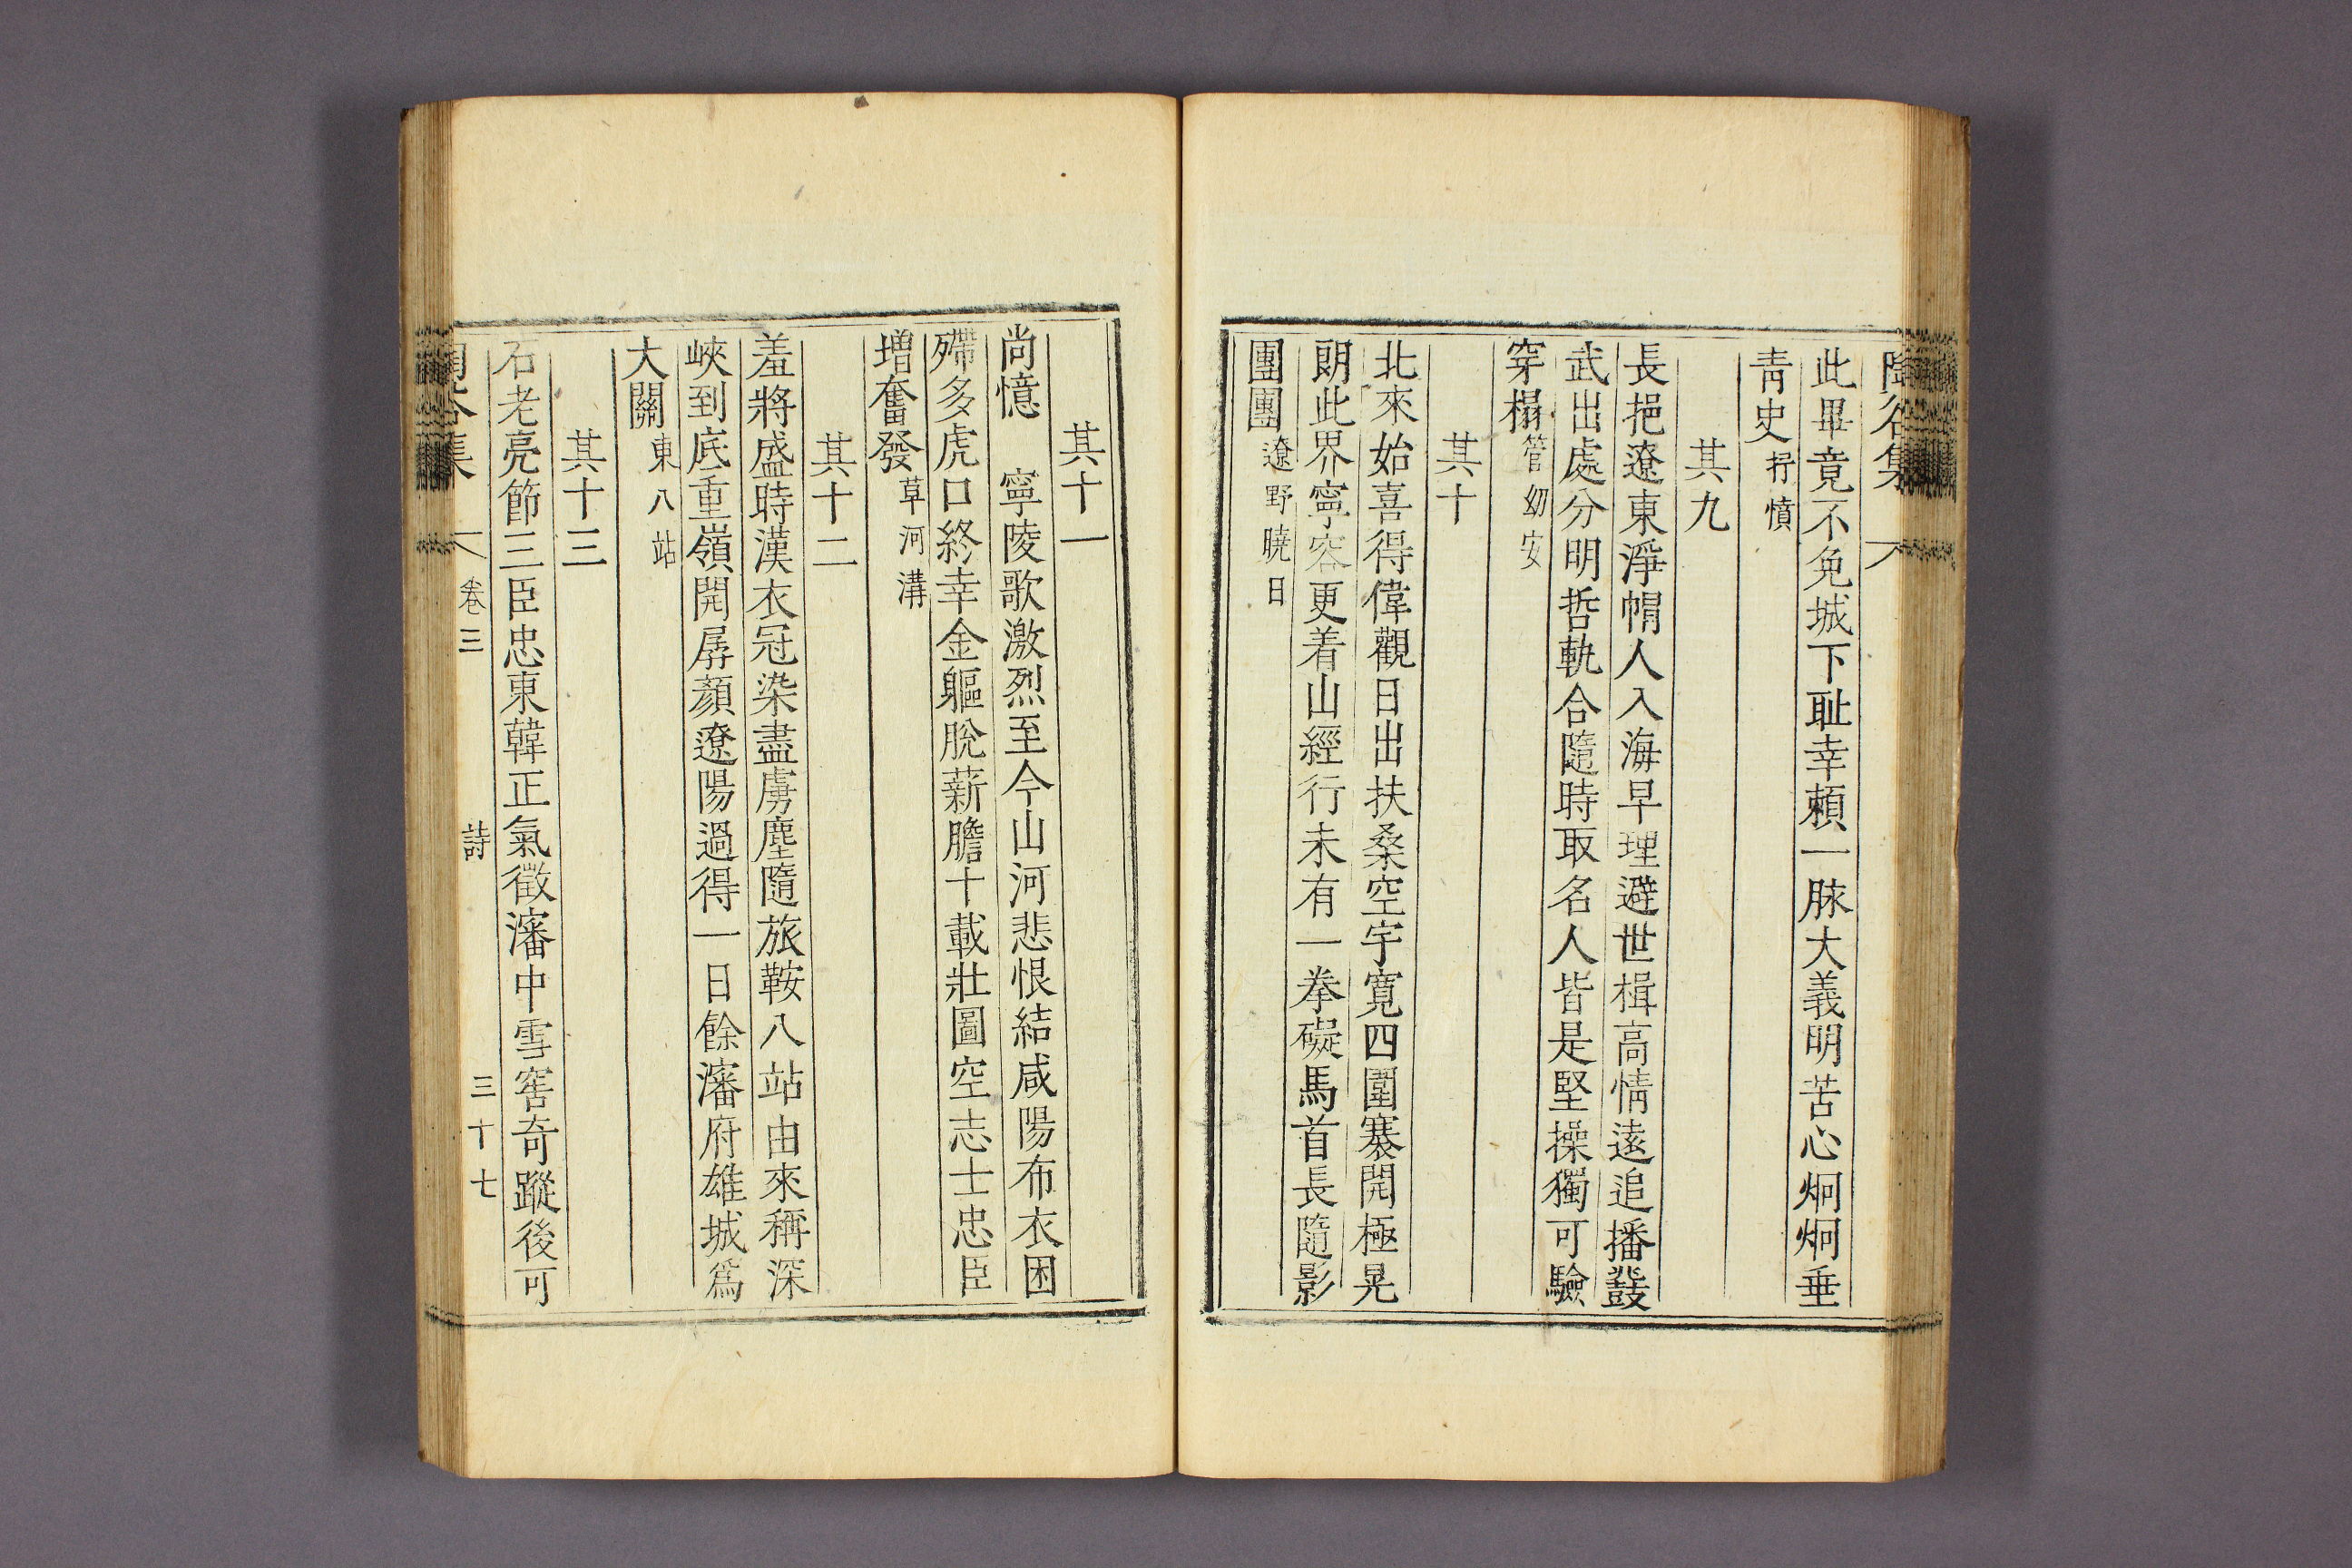 陶谷集
此畢竟不免城下耻幸賴一脉大義明苦心炯炯垂
靑史 抒憤
其九
長挹遼東淨㡌人入海早理避世楫高情遠追播鼗
武出處分明哲軌合隨時取名人皆是堅操獨可驗
穿榻 管幼安
其十
北來始喜得偉觀日出扶桑空宇寬四圍褰開極晃
朗此界寧容更着山經行未有一拳礙馬首長隨影
團團 遼野曉日
其十一
尚憶 寧陵歌激烈至今山河悲恨結咸陽布衣困
殢多虎口終幸金軀脫薪膽十載壯圖空志士忠臣
增奮發 草河溝
其十二
羞將盛時漢衣冠染盡虜塵隨旅鞍八站由來稱深
峽到底重嶺開孱顏遼陽過得一日餘瀋府雄城爲
大關 東八站
其十三
石老亮節三臣忠東韓正氣徵瀋中雪窖奇蹤後可
陶谷集 卷三 詩 三十七